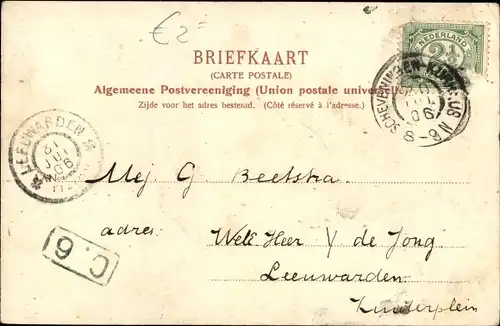 €2=
BRIEFKAART
(CARTE POSTALE)
Algemeene Postvereeniging (Union postale universelle)
Zijde voor het adres bestemd. (Côté réservé à l'adresse.)
NEDERLAND
2½
SCHEVENINGEN-KURHAUS
JUL
06
8-9 N
LEEUWARDEN
JUL
06
C. 6
Mej G Beetstra
adres:
Wele Heer Y de Jong
Leeuwarden